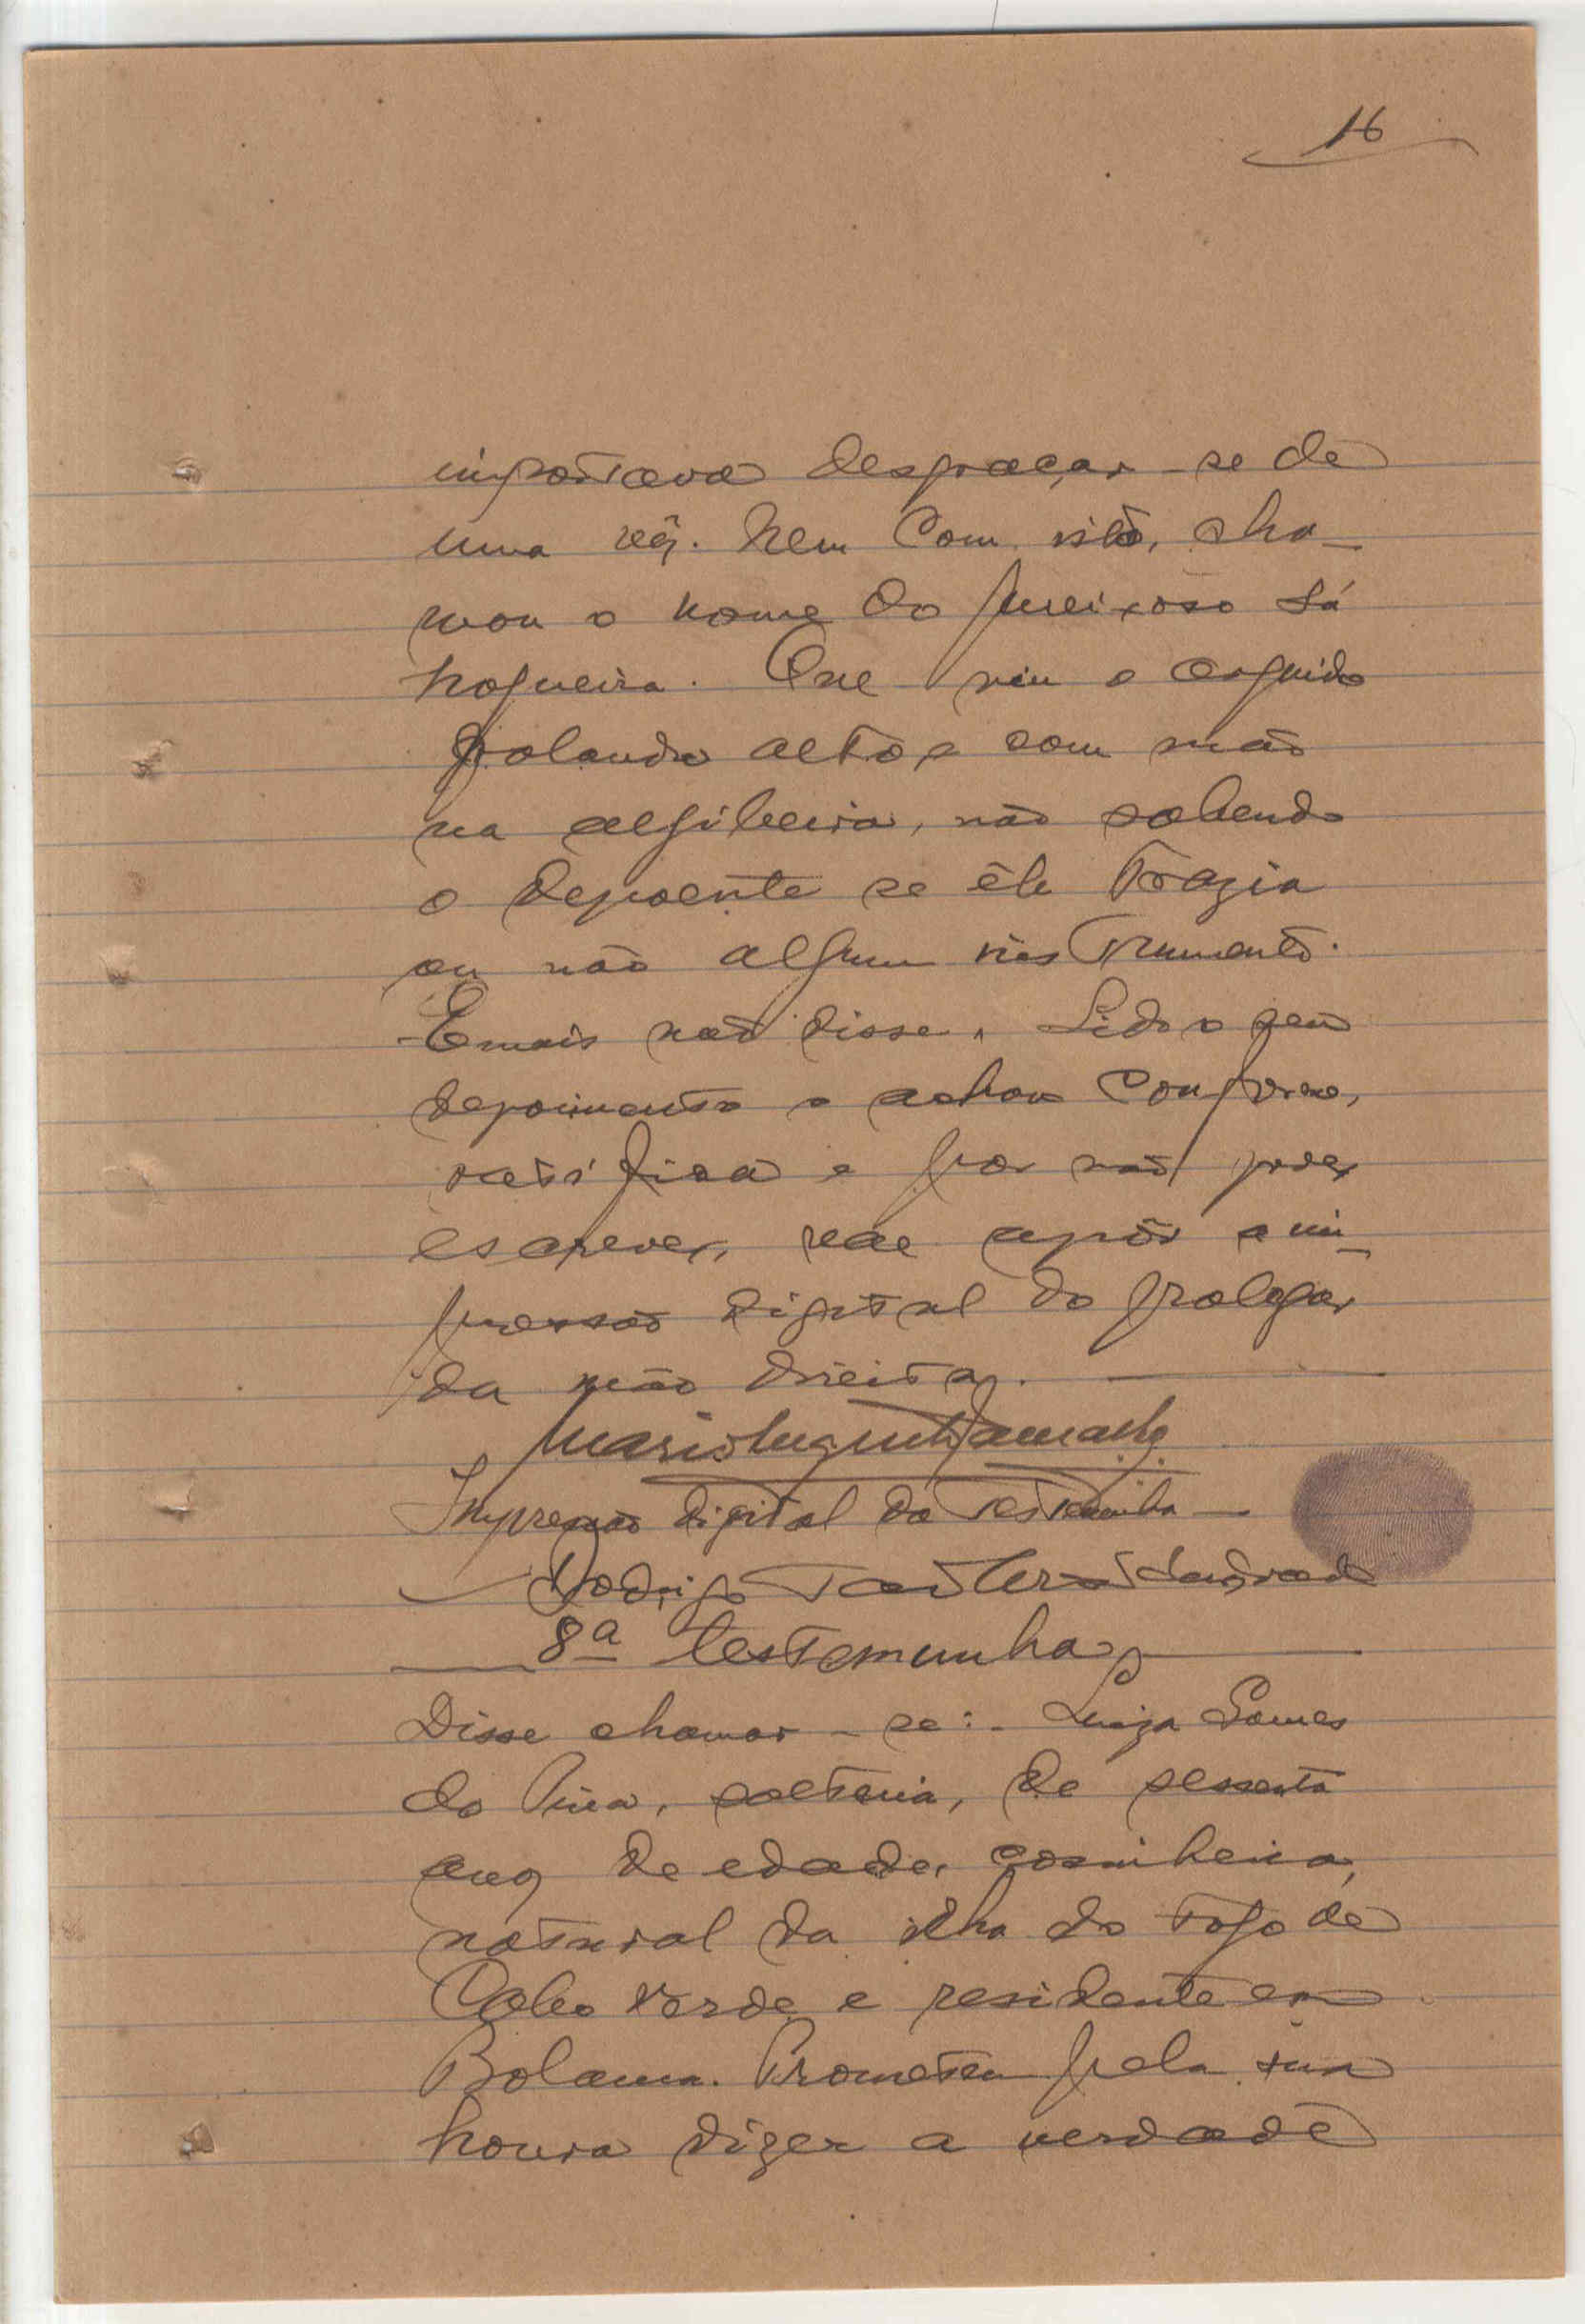 16
importava desgraçar-se de
uma vês. Nem com isto, cha-
mou o nome do queixoso Sá
Nogueira. Que viu o arguido
falando alto e com mão
na algibeira, não sabendo
o depoente se êle trazia
ou não algum instrumento.
E mais não disse. Lido o seu
depoimento o achou conforme,
ratifica e por não poder
escrever, vae apôr a im-
pressão digital do polegar
da mão direita.
Impressão digital da testemunha
Rodrigo
8ª testemunha
Disse chamar-se:- Luiza Gomes
do Pina, solteira, de sessenta
anos de edade, cosinheira,
natural da ilha do Fogo de
Cabo Verde e residente em
Bolama. Prometeu pela sua
honra dizer a verdade